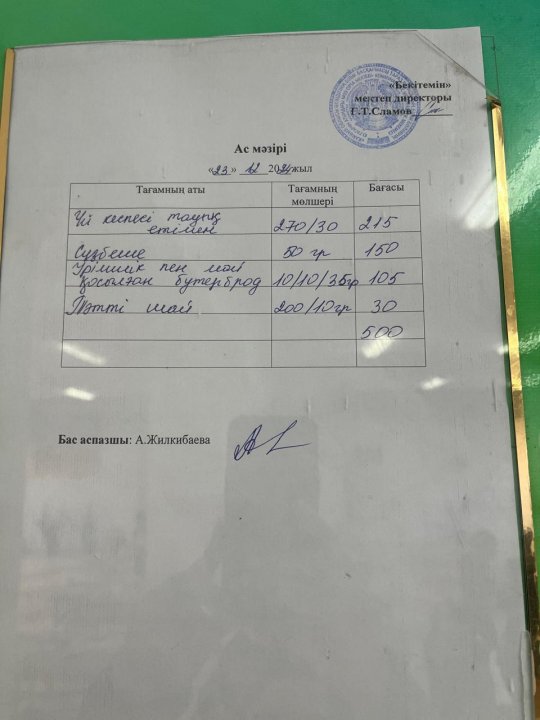 «Бекітемін»
мектеп директоры
Г.Т.Сламов
Ас мәзірі
«23» 12 2024жыл
Тағамның аты Тағамның мөлшері Бағасы
Үй кеспесі тауық етімен 270/30 215
Сүзбеше 50 гр 150
Ірімшік пен май қосылған бутерброд 10/10/35гр 105
Тәтті шай 200/10гр 30
500
Бас аспазшы: А.Жилкибаева